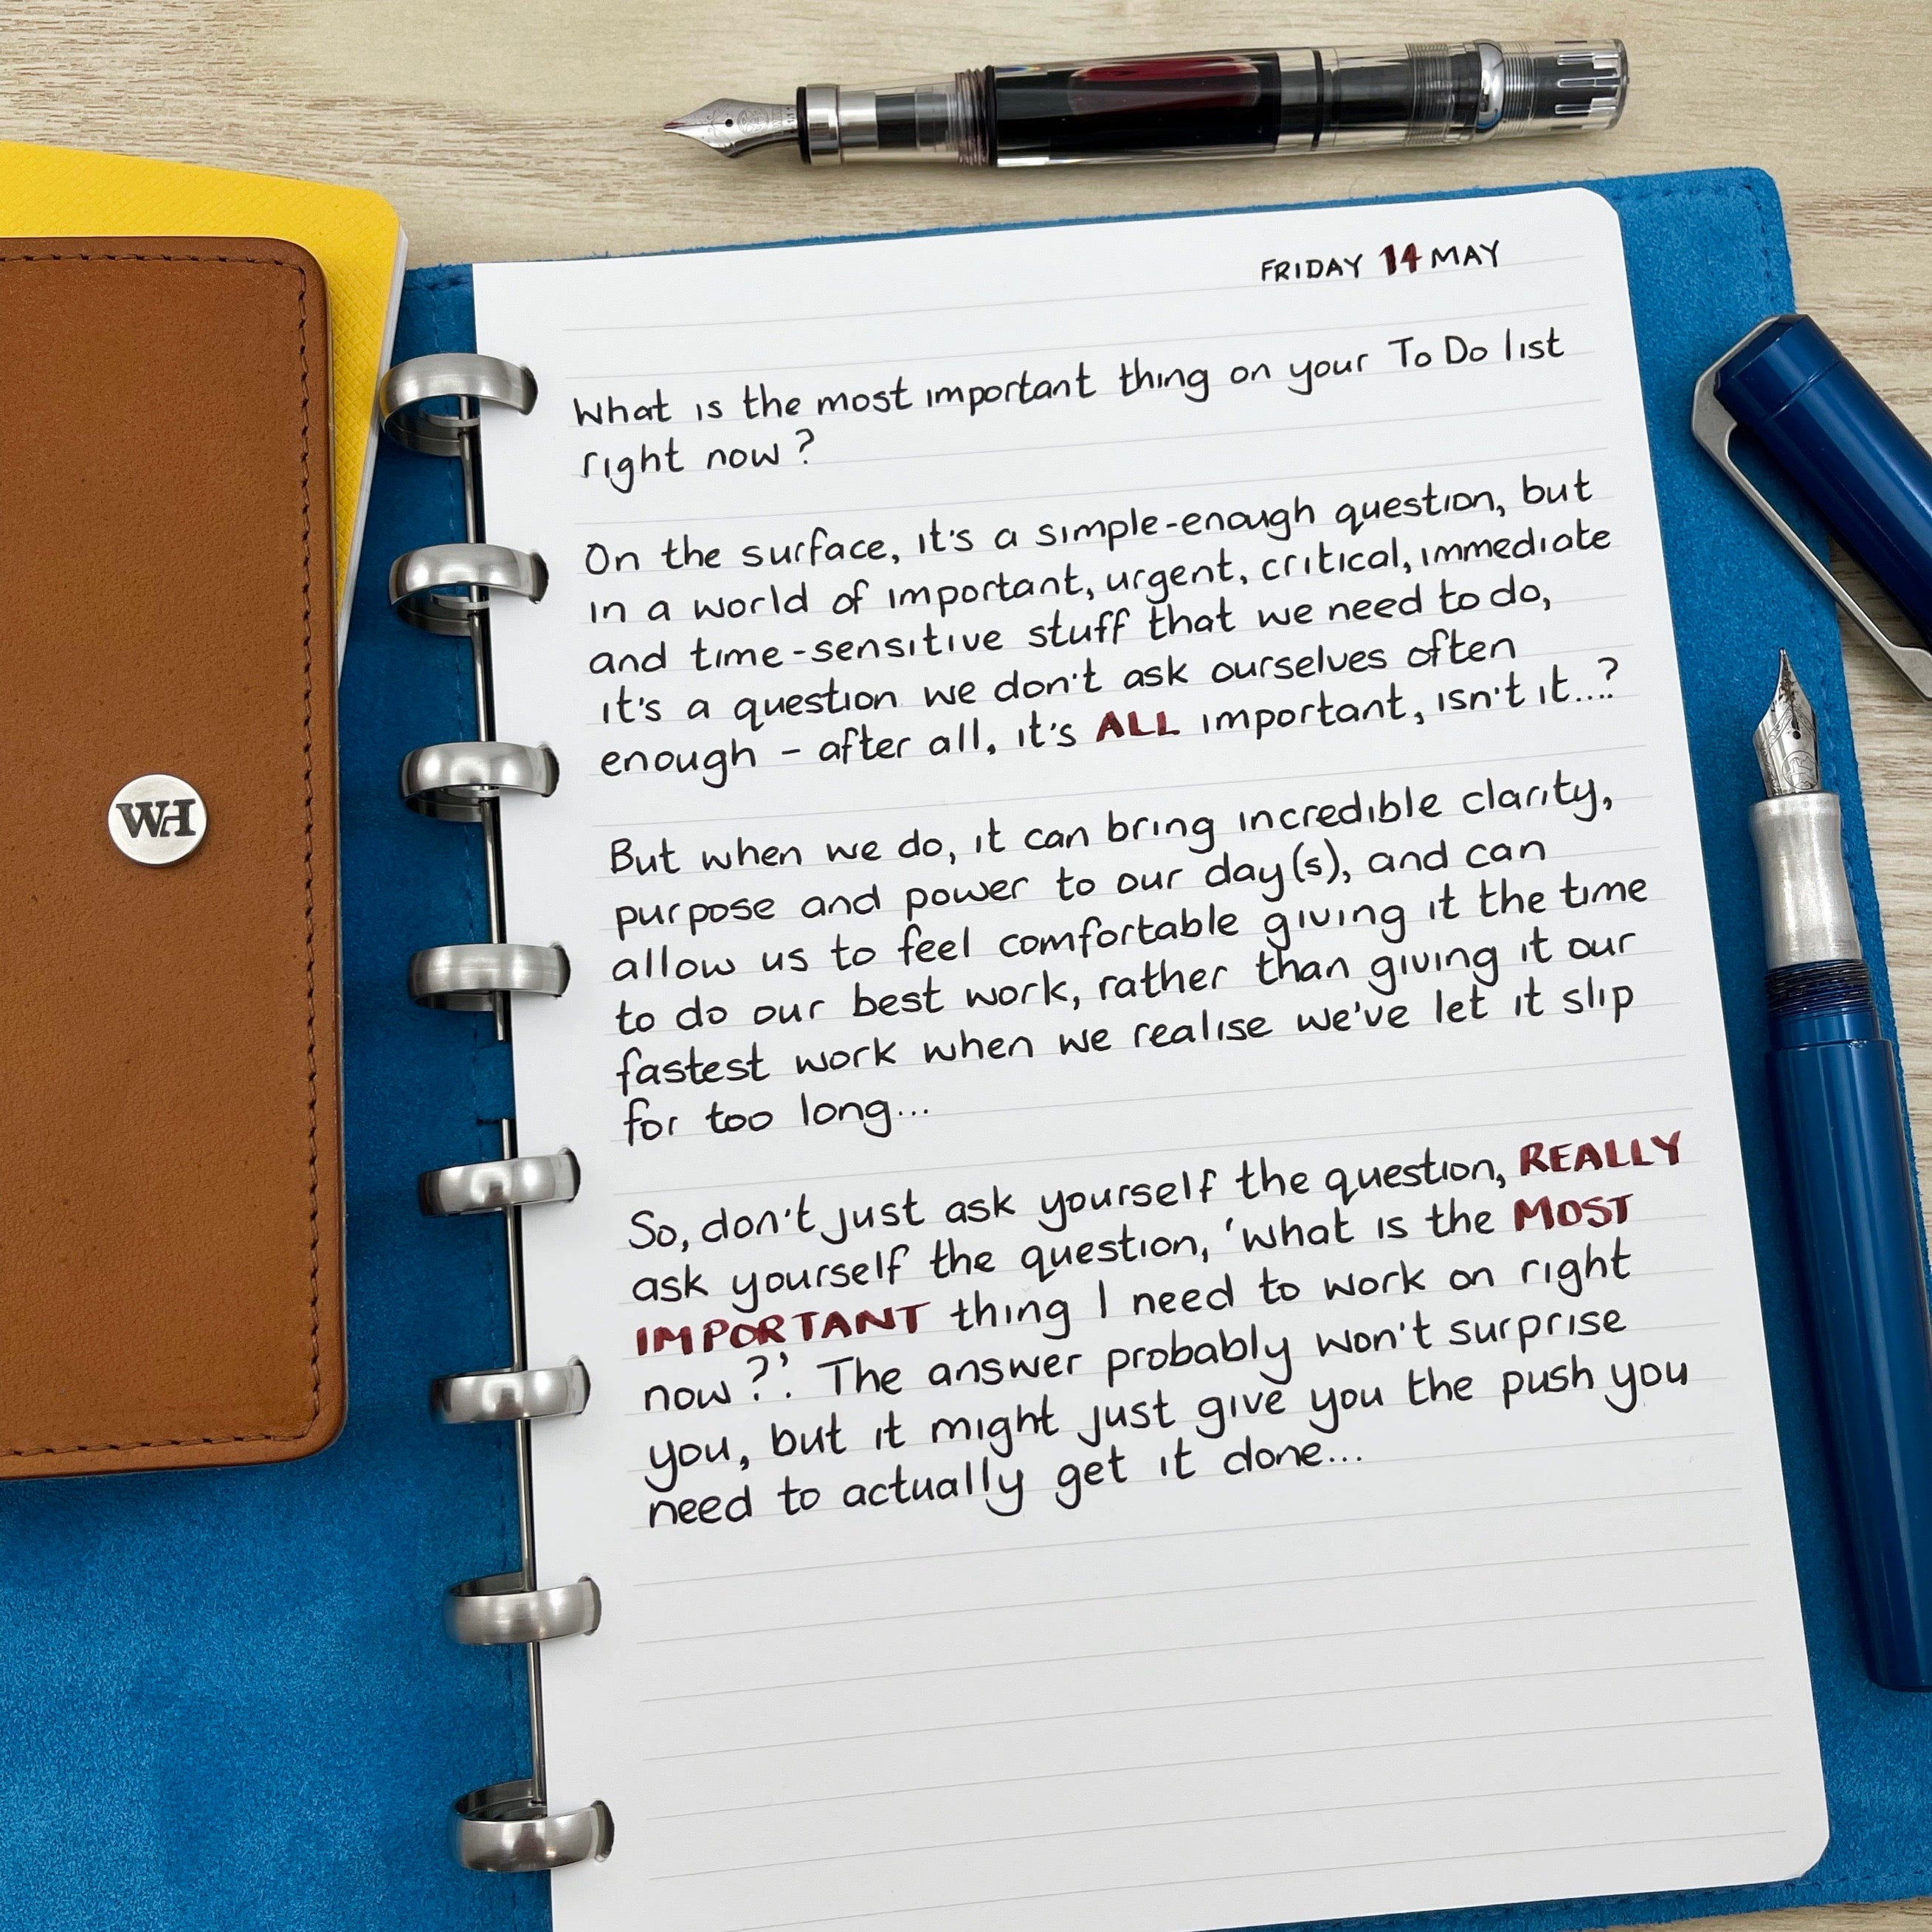 FRIDAY 14 MAY
What is the most important thing on your To Do list
right now?
On the surface, it's a simple-enough question, but
in a world of important, urgent, critical, immediate
and time-sensitive stuff that we need to do,
it's a question we don't ask ourselves often
enough - after all, it's ALL important, isn't it...?
But when we do, it can bring incredible clarity,
purpose and power to our day(s), and can
allow us to feel comfortable giving it the time
to do our best work, rather than giving it our
fastest work when we realise we've let it slip
for too long...
So, don't just ask yourself the question, REALLY
ask yourself the question, 'What is the MOST
IMPORTANT thing I need to work on right
now?'. The answer probably won't surprise
you, but it might just give you the push you
need to actually get it done...
WH